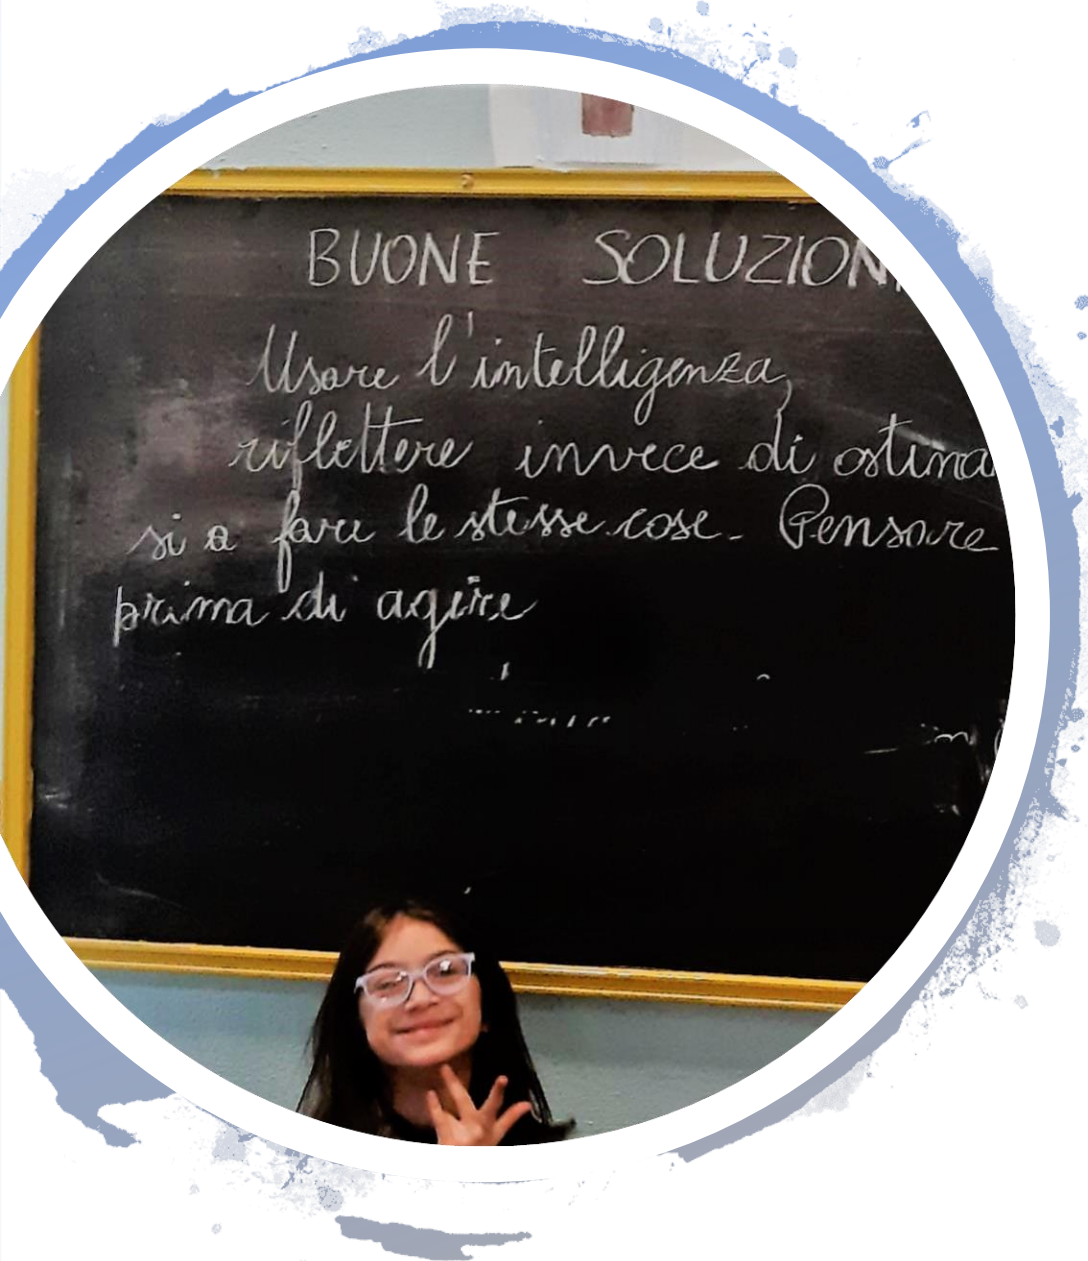 BUONE SOLUZION
Usare l'intelligenza,
riflettere invece di ostina
si a fare le stesse cose. Pensare
prima di agire